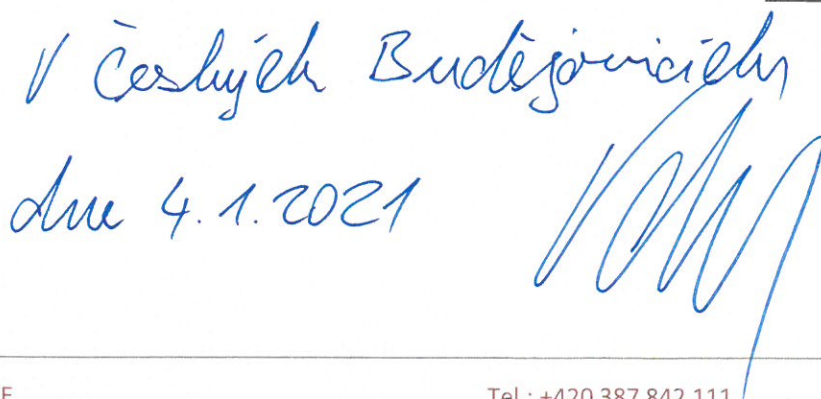 V Českých Budějovicích
dne 4.1.2021
E
Tel.: +420 387 842 111